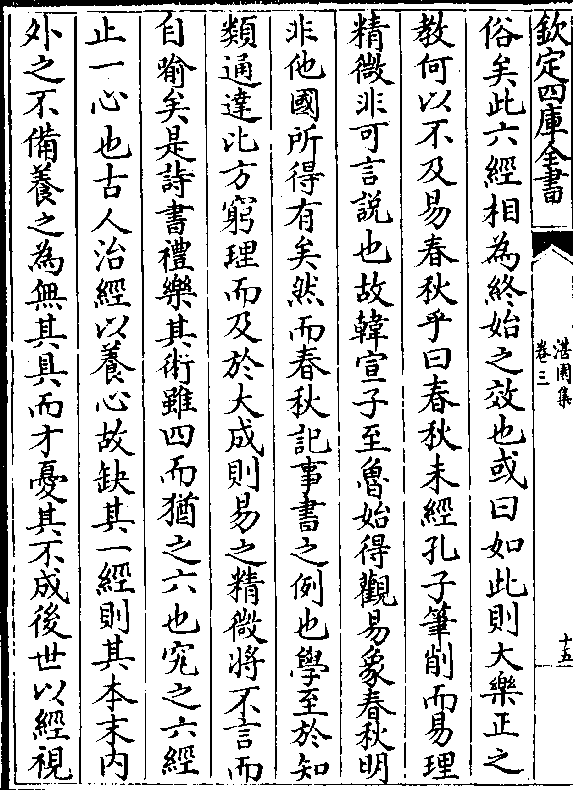 欽定四庫全書
湛園集
卷三
十五
俗矣此六經相為終始之效也或曰如此則大樂正之
教何以不及易春秋乎曰春秋未經孔子筆削而易理
精微非可言說也故韓宣子至魯始得觀易象春秋明
非他國所得有矣然而春秋記事書之例也學至於知
類通達比方窮理而及於大成則易之精微將不言而
自喻矣是詩書禮樂其術雖四而猶之六也究之六經
止一心也古人治經以養心故缺其一經則其本末内
外之不備養之為無其具而才憂其不成後世以經視